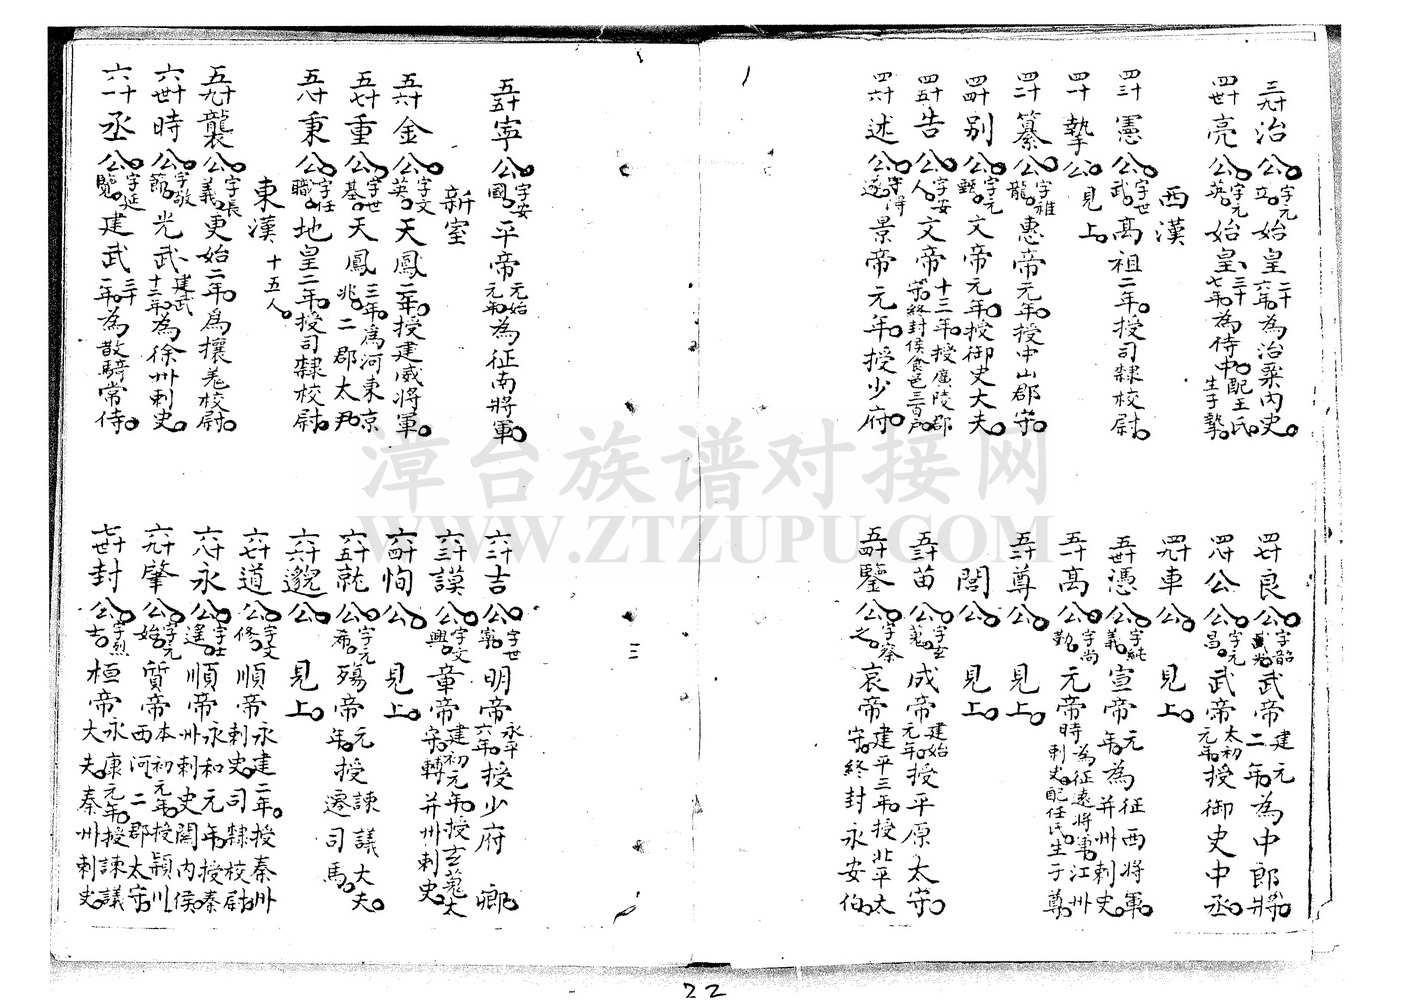 三十九 治公 字元立 始皇二十六年為治粟內史
四十世 亮公 字元英 始皇三十七年為侍中配王氏生子摯
西漢
四十一 摯公 見上
四十二 纂公 字雅龍 惠帝元年授中山郡守
四十三 憲公 字世武 高祖二年授司隸校尉
四十四 別公 字元甄 文帝元年授御史大夫
四十五 告公 字安人 文帝十三年授廣陵郡守終封侯食邑三百戶
四十六 述公 景帝元年授少府
四十七 良公 字韶 武帝建元二年為中郎將
四十八 公公 字元昌 武帝太初元年授御史中丞
四十九 車公 見上
五十世 憑公 字純義 宣帝元年為征西將軍并州刺史
五十一 高公 字尚勤 元帝時為征遠將軍江州刺史配任氏生子尊
五十二 尊公 見上
閭公 見上
五十三 苗公 字玄蒐 成帝建始元年授平原太守
五十四 鑒公 字察之 哀帝建平三年授北平太守終封永安伯
五十五 寧公 字安國 平帝元始元年為征南將軍
新室
五十六 金公 字文英 天鳳二年授建威將軍
五十七 重公 字世基 天鳳三年為河東京兆二郡太尹
五十八 秉公 字任職 地皇二年授司隸校尉
東漢 十五人
五十九 襲公 字長義 更始二年為攘羌校尉
六十世 時公 字敬節 光武建武十二年為徐州刺史
六十一 丞公 字延覽 建武三十一年為散騎常侍
六十二 吉公 字世寧 明帝永平六年授少府卿
六十三 謨公 字文興 章帝建初元年授玄蒐太守轉并州刺史
六十四 恂公 見上
六十五 就公 字元希 殤帝元年授諫議大夫遷司馬
六十六 邈公 見上
六十七 道公 字文修 順帝永建二年授秦州刺史司隸校尉
六十八 永公 字仕達 順帝永和元年授秦州刺史關內侯
六十九 肇公 字元始 質帝本初元年授潁川西河二郡太守
七十世 封公 字烈吉 桓帝永康元年授諫議大夫秦州刺史
三
漳台族谱对接网
WWW.ZTZUPU.COM
22